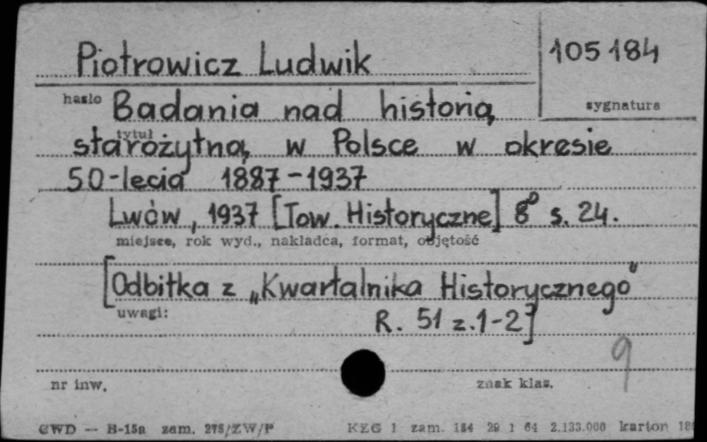 Piotrowicz Ludwik
105 184
hasło
sygnatura
Badania nad historią
tytuł
starożytną, w Polsce w okresie
50-lecia 1887-1937
Lwów, 1937 [Tow. Historyczne] 8° s. 24.
miejsce, rok wyd., nakładca, format, objętość
[Odbitka z „Kwartalnika Historycznego"
uwagi:
R. 51 z. 1-2]
9
nr inw.
znak klas.
CWD — B-15a zam. 278/ZW/P
KZG 1 zam. 184 29 1 64 2.133.000 karton